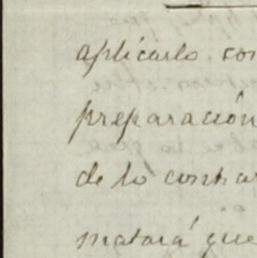 aplicarlo con
preparación
de lo contrar
matará que